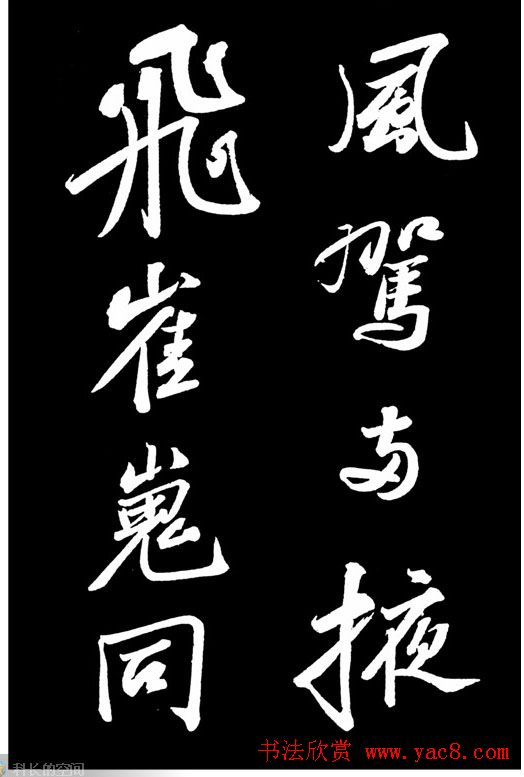 風駕兩掖
飛崔嵬同
书法欣赏 www.yac8.com
科长的空间